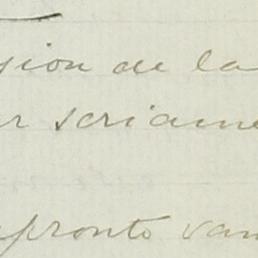 sion de la
r scriame
pronto van